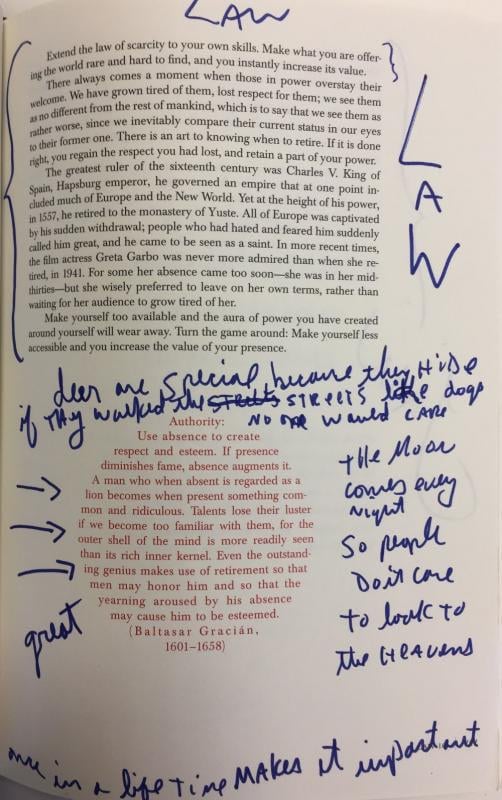 LAW
Extend the law of scarcity to your own skills. Make what you are offer-
ing the world rare and hard to find, and you instantly increase its value.
There always comes a moment when those in power overstay their
welcome. We have grown tired of them, lost respect for them; we see them
as no different from the rest of mankind, which is to say that we see them as
rather worse, since we inevitably compare their current status in our eyes
to their former one. There is an art to knowing when to retire. If it is done
right, you regain the respect you had lost, and retain a part of your power.
The greatest ruler of the sixteenth century was Charles V. King of
Spain, Hapsburg emperor, he governed an empire that at one point in-
cluded much of Europe and the New World. Yet at the height of his power,
in 1557, he retired to the monastery of Yuste. All of Europe was captivated
by his sudden withdrawal; people who had hated and feared him suddenly
called him great, and he came to be seen as a saint. In more recent times,
the film actress Greta Garbo was never more admired than when she re-
tired, in 1941. For some her absence came too soon—she was in her mid-
thirties—but she wisely preferred to leave on her own terms, rather than
waiting for her audience to grow tired of her.
Make yourself too available and the aura of power you have created
around yourself will wear away. Turn the game around: Make yourself less
accessible and you increase the value of your presence.
L
A
W
deer are special because they HiDe
if THy walked the streets STREETS like dogs
NO one would CARE
Authority:
Use absence to create
respect and esteem. If presence
diminishes fame, absence augments it.
A man who when absent is regarded as a
lion becomes when present something com-
mon and ridiculous. Talents lose their luster
if we become too familiar with them, for the
outer shell of the mind is more readily seen
than its rich inner kernel. Even the outstand-
ing genius makes use of retirement so that
men may honor him and so that the
yearning aroused by his absence
may cause him to be esteemed.
(Baltasar Gracián,
1601–1658)
great
the Moon
comes every
Night
So people
Don't care
to look to
the HEAVENS
once in a life time MAKES it important